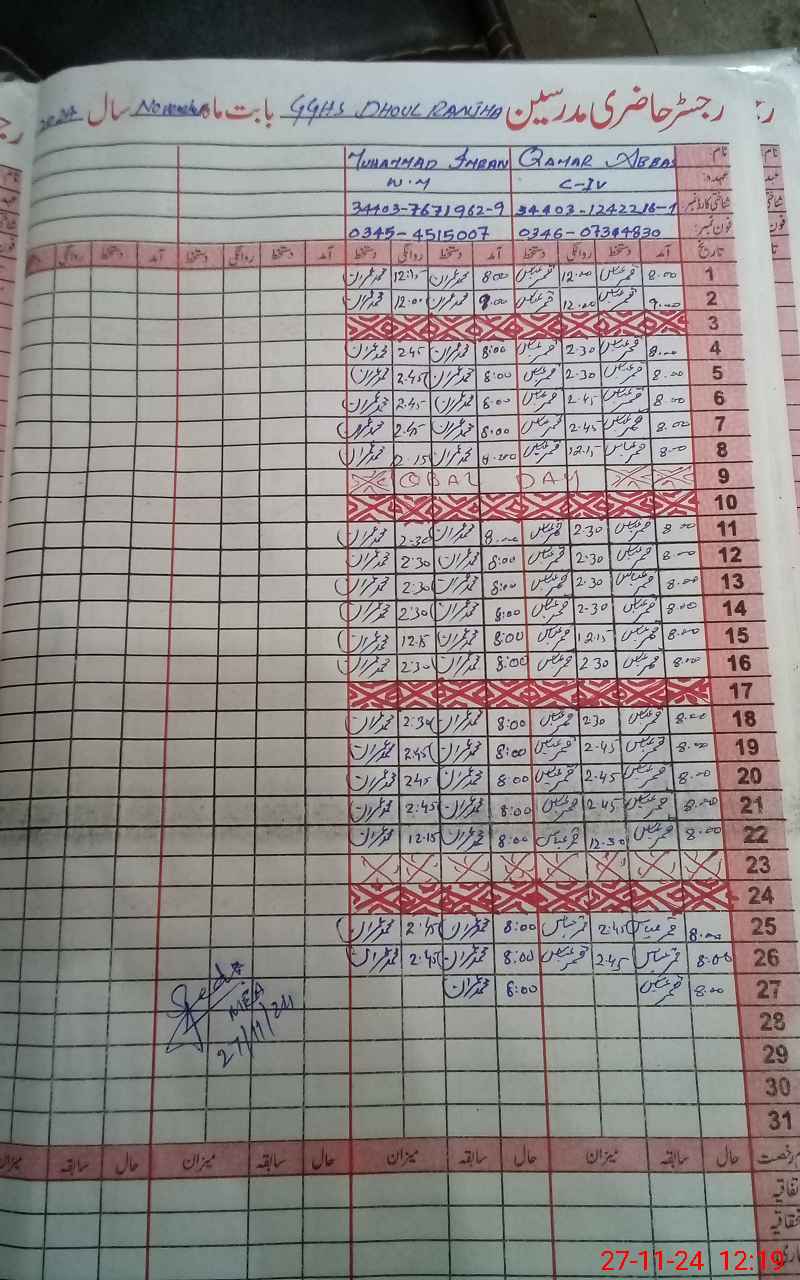 رجسٹر حاضری مدرسین GGHS DHOUL RANJHA بابت ماہ November سال 2024
نام: QAMAR ABBAS MUHAMMAD IMRAN
عہدہ: C-IV W.M
شناختی کارڈ نمبر: 34403-7671962-9
فون نمبر: 0346-07344830 0345-4515007
تاریخ آمد دستخط روانگی دستخط آمد دستخط روانگی دستخط آمد دستخط روانگی دستخط آمد دستخط روانگی
1 8.00 قمر عباس 12.00 قمر عباس 8:00 محمد عمران 12:15 محمد عمران
2 9.00 قمر عباس 12.00 قمر عباس 9.00 محمد عمران 12:00 محمد عمران
3
4 8.00 قمر عباس 2.30 قمر عباس 8:00 محمد عمران 2.45 محمد عمران
5 8.00 قمر عباس 2.30 قمر عباس 8:00 محمد عمران 2.45 محمد عمران
6 8.00 قمر عباس 2.45 قمر عباس 8:00 محمد عمران 2.45 محمد عمران
7 8.00 قمر عباس 2.45 قمر عباس 8:00 محمد عمران 2.45 محمد عمران
8 8.00 قمر عباس 12.15 قمر عباس 8.00 محمد عمران 12.15 محمد عمران
9 IQBAL DAY
10
11 8.00 قمر عباس 2.30 قمر عباس 8.00 محمد عمران 2:30 محمد عمران
12 8.00 قمر عباس 2.30 قمر عباس 8:00 محمد عمران 2:30 محمد عمران
13 8.00 قمر عباس 2.30 قمر عباس 8:00 محمد عمران 2:30 محمد عمران
14 8.00 قمر عباس 2.30 قمر عباس 8:00 محمد عمران 2:30 محمد عمران
15 8.00 قمر عباس 12.15 قمر عباس 8:00 محمد عمران 12.15 محمد عمران
16 8.00 قمر عباس 2.30 قمر عباس 8:00 محمد عمران 2:30 محمد عمران
17
18 8.00 قمر عباس 2.30 قمر عباس 8:00 محمد عمران 2:30 محمد عمران
19 8.00 قمر عباس 2.45 قمر عباس 8:00 محمد عمران 2.45 محمد عمران
20 8.00 قمر عباس 2.45 قمر عباس 8:00 محمد عمران 2.45 محمد عمران
21 8.00 قمر عباس 2.45 قمر عباس 8:00 محمد عمران 2:45 محمد عمران
22 8.00 قمر عباس 12.30 قمر عباس 8:00 محمد عمران 12.15 محمد عمران
23
24
25 8.00 قمر عباس 2.45 قمر عباس 8:00 محمد عمران 2:45 محمد عمران
26 8.00 قمر عباس 2.45 قمر عباس 8:00 محمد عمران 2:45 محمد عمران
27 8.00 قمر عباس 8:00 محمد عمران
28
29
30
31
MEA
27/11/24
رخصت حال سابقہ میزان حال سابقہ میزان حال سابقہ میزان حال سابقہ میزان
27-11-24 12:19